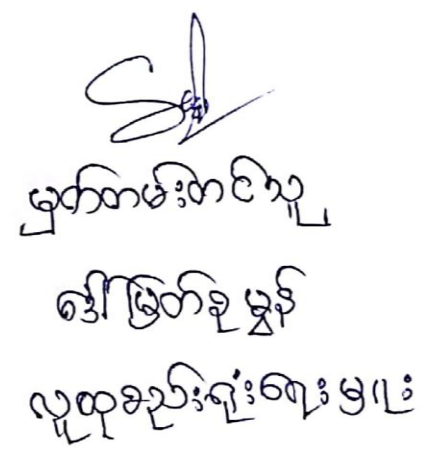 မှတ်တမ်းတင်သူ
ဒေါ်မြတ်စုမွန်
လူထုစည်းရုံးရေးမှူး